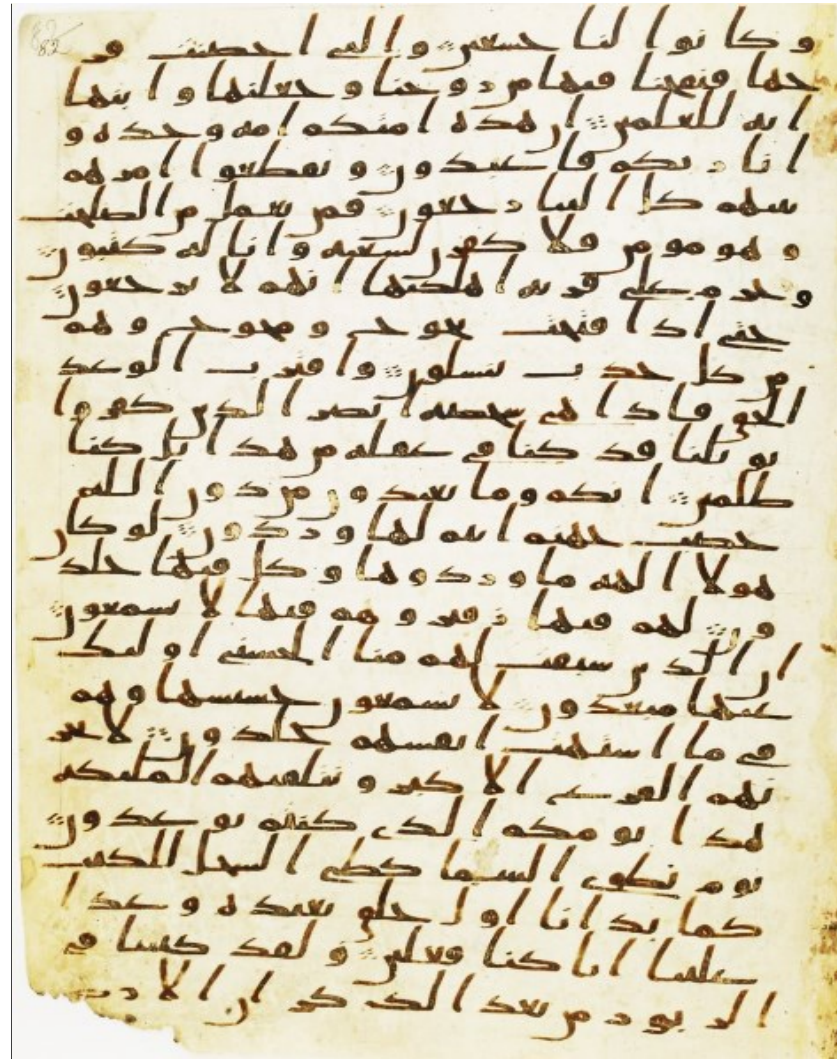 82
وكانوا لنا خشعين والتي احصنت فر
جها فنفخنا فيها من روحنا وجعلنها وابنها
ايه للعلمين ان هذه امتكم امه وحده و
انا ربكم فاعبدون وتقطعوا امرهم
بينهم كل الينا رجعون فمن يعمل من الصلحت
وهو مومن فلا كفرن لسعيه وانا له كتبون
وحرم على قريه اهلكنها انهم لا يرجعون
حتى اذا فتحت يجوج ومجوج وهم
من كل حدب ينسلون واقترب الوعد
الحق فاذا هي شخصه ابصر الذين كفروا
يويلنا قد كنا في غفله من هذا بل كنا
ظلمين انكم وما تعبدون من دون الله
حصب جهنم انتم لها وردون لو كان
هولا الهه ما وردوها وكل فيها خلد
ون لهم فيها زفير وهم فيها لا يسمعون
ان الذين سبقت لهم منا الحسنى اوليك
عنها مبعدون لا يسمعون حسيسها وهم
في ما اشتهت انفسهم خلدون لا يحز
نهم الفزع الاكبر وتتلقيهم المليكه
هذا يومكم الذي كنتم توعدون
يوم نطوي السما كطي السجل للكتب
كما بدانا اول خلق نعيده وعدا
علينا انا كنا فعلين ولقد كتبنا في
الزبور من بعد الذكر ان الارض